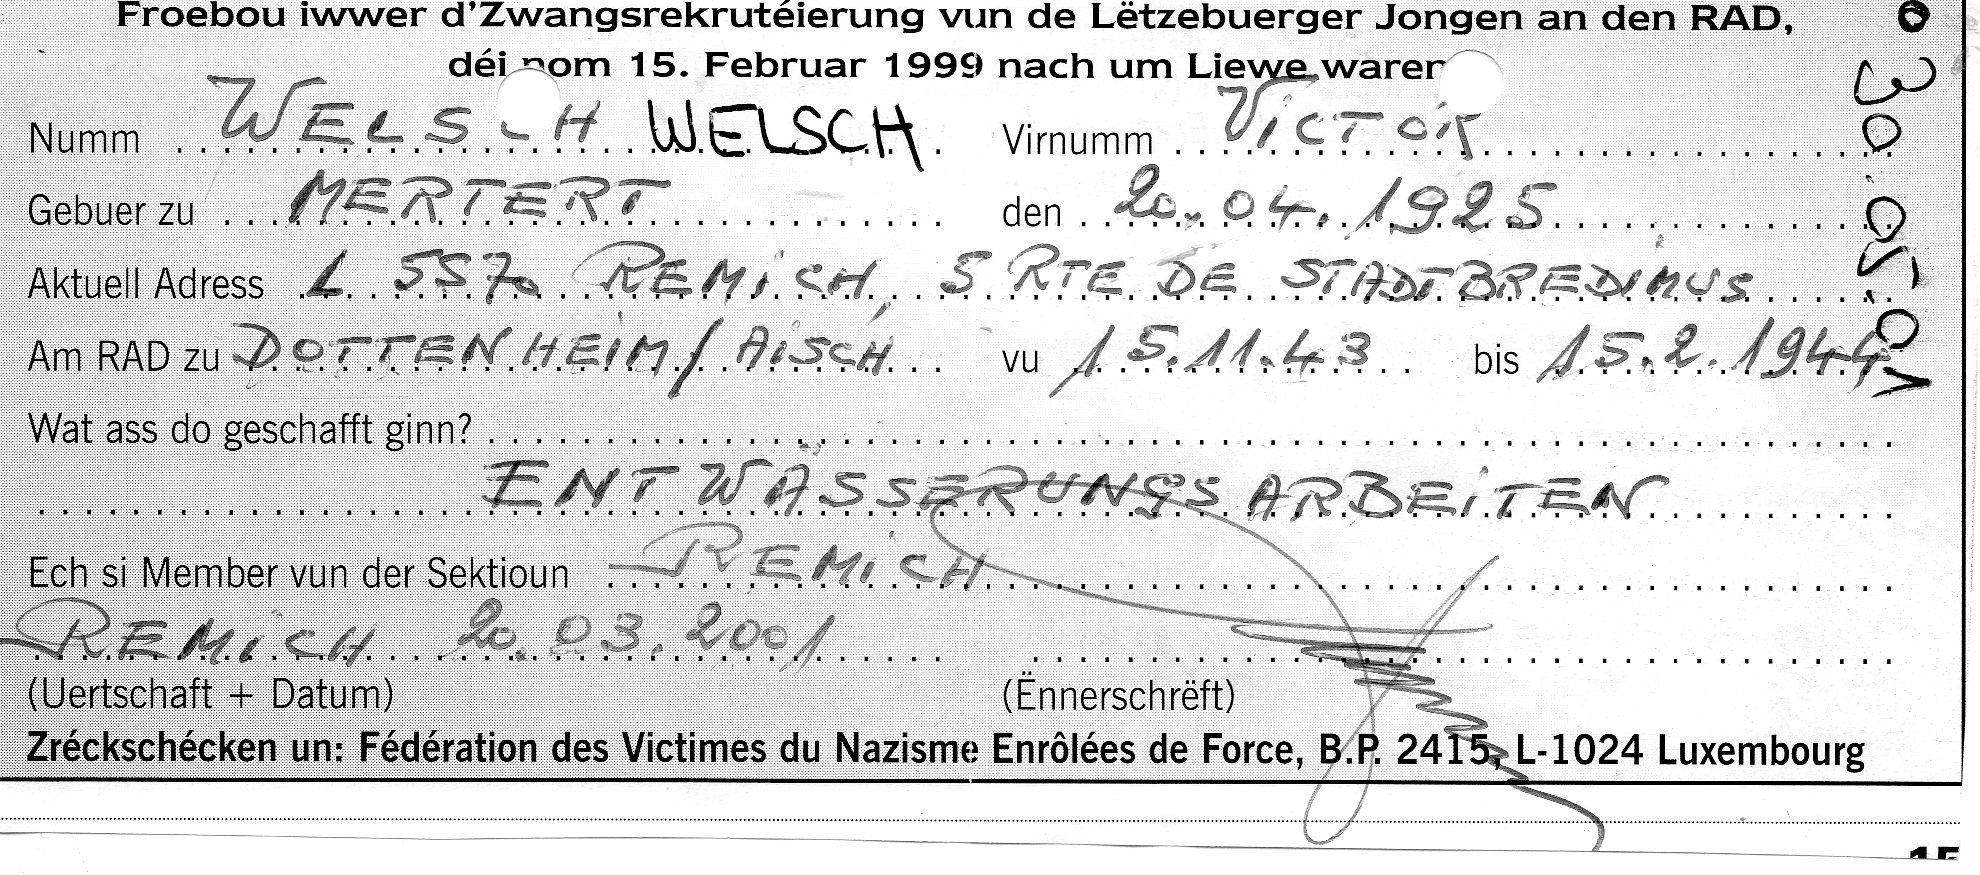 Froebou iwwer d'Zwangsrekrutéierung vun de Lëtzebuerger Jongen an den RAD,
déi nom 15. Februar 1999 nach um Liewe waren
Numm WELSCH WELSCH Virnumm VICTOR
Gebuer zu MERTERT den 20.04.1925
Aktuell Adress L 5570 REMICH, 5 RTE DE STADTBREDIMUS
Am RAD zu DOTTENHEIM/AISCH vu 15.11.43 bis 15.2.1944
Wat ass do geschafft ginn?
ENTWÄSSERUNGSARBEITEN
Ech si Member vun der Sektioun REMICH
REMICH 20.03.2001
(Uertschaft + Datum) (Ënnerschrëft)
Zréckschécken un: Fédération des Victimes du Nazisme Enrôlées de Force, B.P. 2415, L-1024 Luxembourg
30.05.01
15